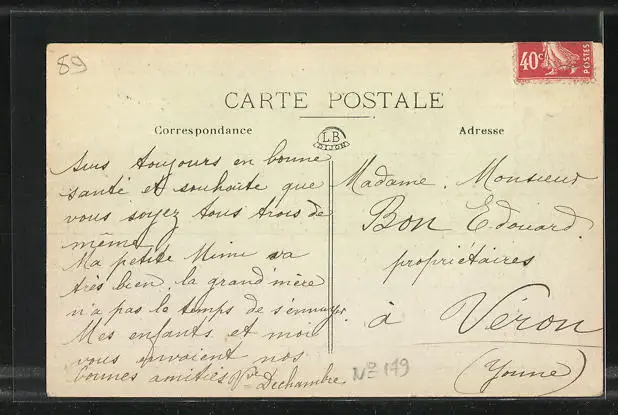 89
40c
POSTES
CARTE POSTALE
Correspondance
LB
DIJON
Adresse
suis toujours en bonne
santé et souhaite que
vous soyez tous trois de
même
Ma petite Mimi va
très bien. la grand'mère
n'a pas le temps de s'ennuyer.
Mes enfants et moi
vous envoient nos
bonnes amitiés Vve Dechambre
Madame. Monsieur
Bon Edouard.
propriétaires
à Véron
(Yonne)
No 179